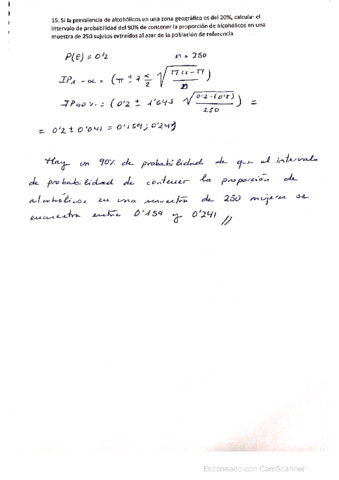 15. Si la prevalencia de alcohólicos en una zona geográfica es del 20%, calcular el
intervalo de probabilidad del 90% de contener la proporción de alcohólicos en una
muestra de 250 sujetos extraídos al azar de la población de referencia
P(E) = 0'2 n = 250
IP1-α = (π ± z α/2 √ π(1-π)/n )
IP90% = (0'2 ± 1'645 √ 0'2·(0'8)/250 ) =
= 0'2 ± 0'041 = 0'159 ; 0'241)
Hay un 90% de probabilidad de que el intervalo
de probabilidad de contener la proporción de
alcohólicos en una muestra de 250 mujeres se
encuentra entre 0'159 y 0'241 //
Escaneado con CamScanner